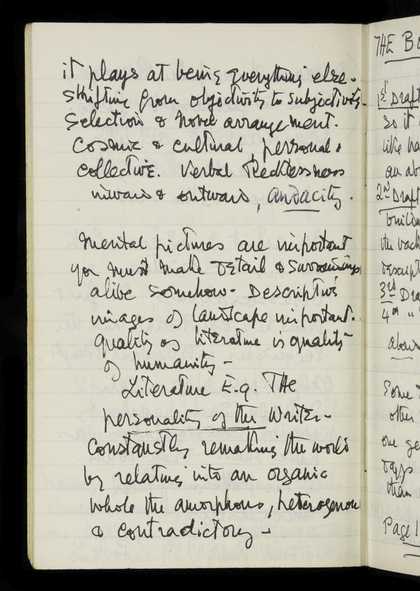 it plays at being everything else.
Shifting from objectivity to subjectivity.
Selection & novel arrangement.
Cosmic & cultural, personal &
collective. Verbal Recklessness
inwards & outwards, audacity.
Mental pictures are important
you must make detail & surroundings
alive somehow. Descriptive
images of landscape important.
quality of literature is quality
of humanity -
Literature E.g. THE
personality of the writer -
Constantly remaking the world
by relating into an organic
whole the amorphous, heterogenous
& contradictory -
THE
1st Draft
2nd Draft
3rd
4th "
Some
other
Page 1